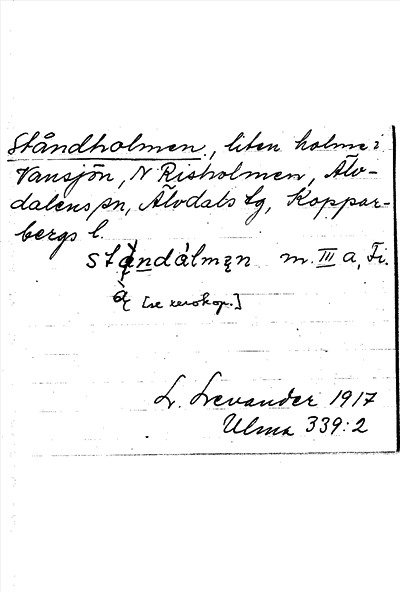 Ståndholmen, liten holme i
Vansjön, N Risholmen, Älv-
dalens sn, Älvdals tg, Koppar-
bergs l.
ståndålmęn m. III a, Fi.
å̀ [se xerokop.]
L. Levander 1917
Ulma 339:2